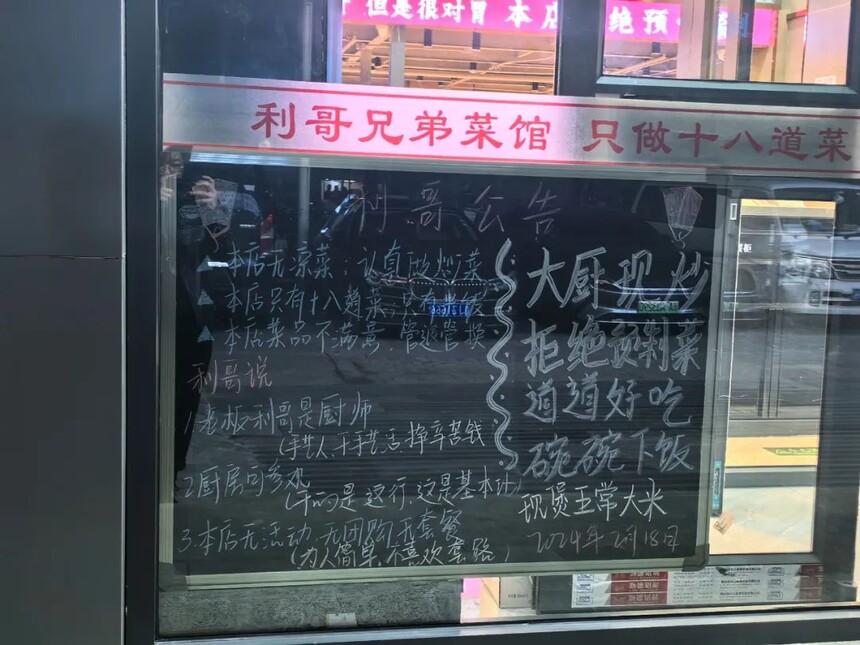 但是很对胃 本店 绝预
利哥兄弟菜馆 只做十八道菜
利哥公告
本店无凉菜：认真做炒菜
本店只有十八道菜，只有
本店菜品不满意，管退管换
利哥说
1.老板利哥是厨师
（手艺人，干手艺活，挣辛苦钱
2.厨房可参观
（干的是这行，这是基本功）
3.本店无活动，无团购，无套餐
（为人简单，不喜欢套路）
大厨现炒
拒绝预制菜
道道好吃
碗碗下饭
现煲五常大米
2024年2月18日